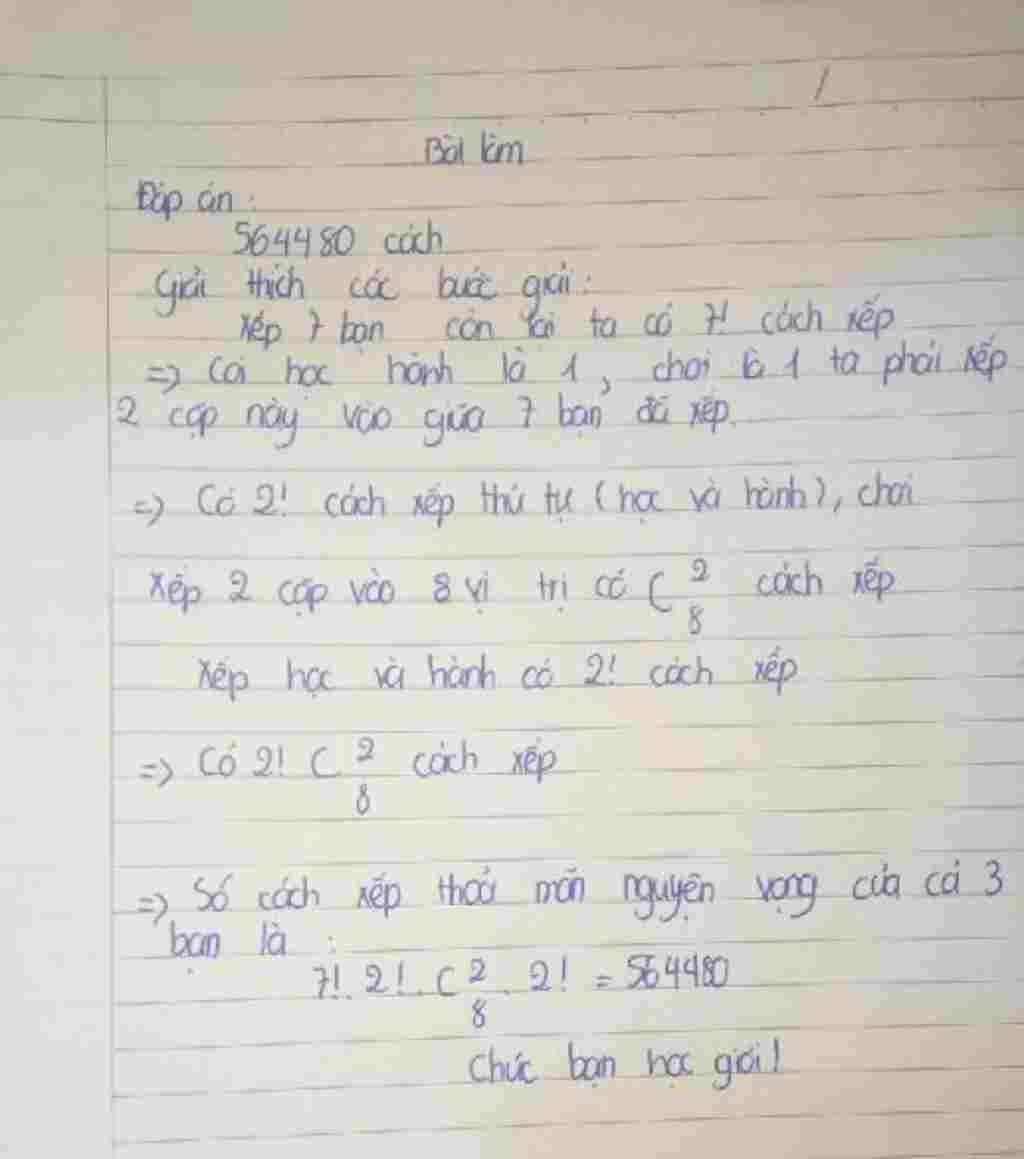 Bài làm
Đáp án:
564480 cách
Giải thích các bước giải:
Xếp 7 bạn còn lại ta có 7! cách xếp
=> Coi học hành là 1, chơi là 1 ta phải xếp
2 cặp này vào giữa 7 bạn đã xếp.
=> Có 2! cách xếp thứ tự (học và hành), chơi
Xếp 2 cặp vào 8 vị trị có C 2 8 cách xếp
Xếp học và hành có 2! cách xếp
=> Có 2! C 2 8 cách xếp
=> Số cách xếp thoả mãn nguyện vọng của cả 3
bạn là :
7!. 2!. C 2 8 . 2! = 564480
Chúc bạn học giỏi!